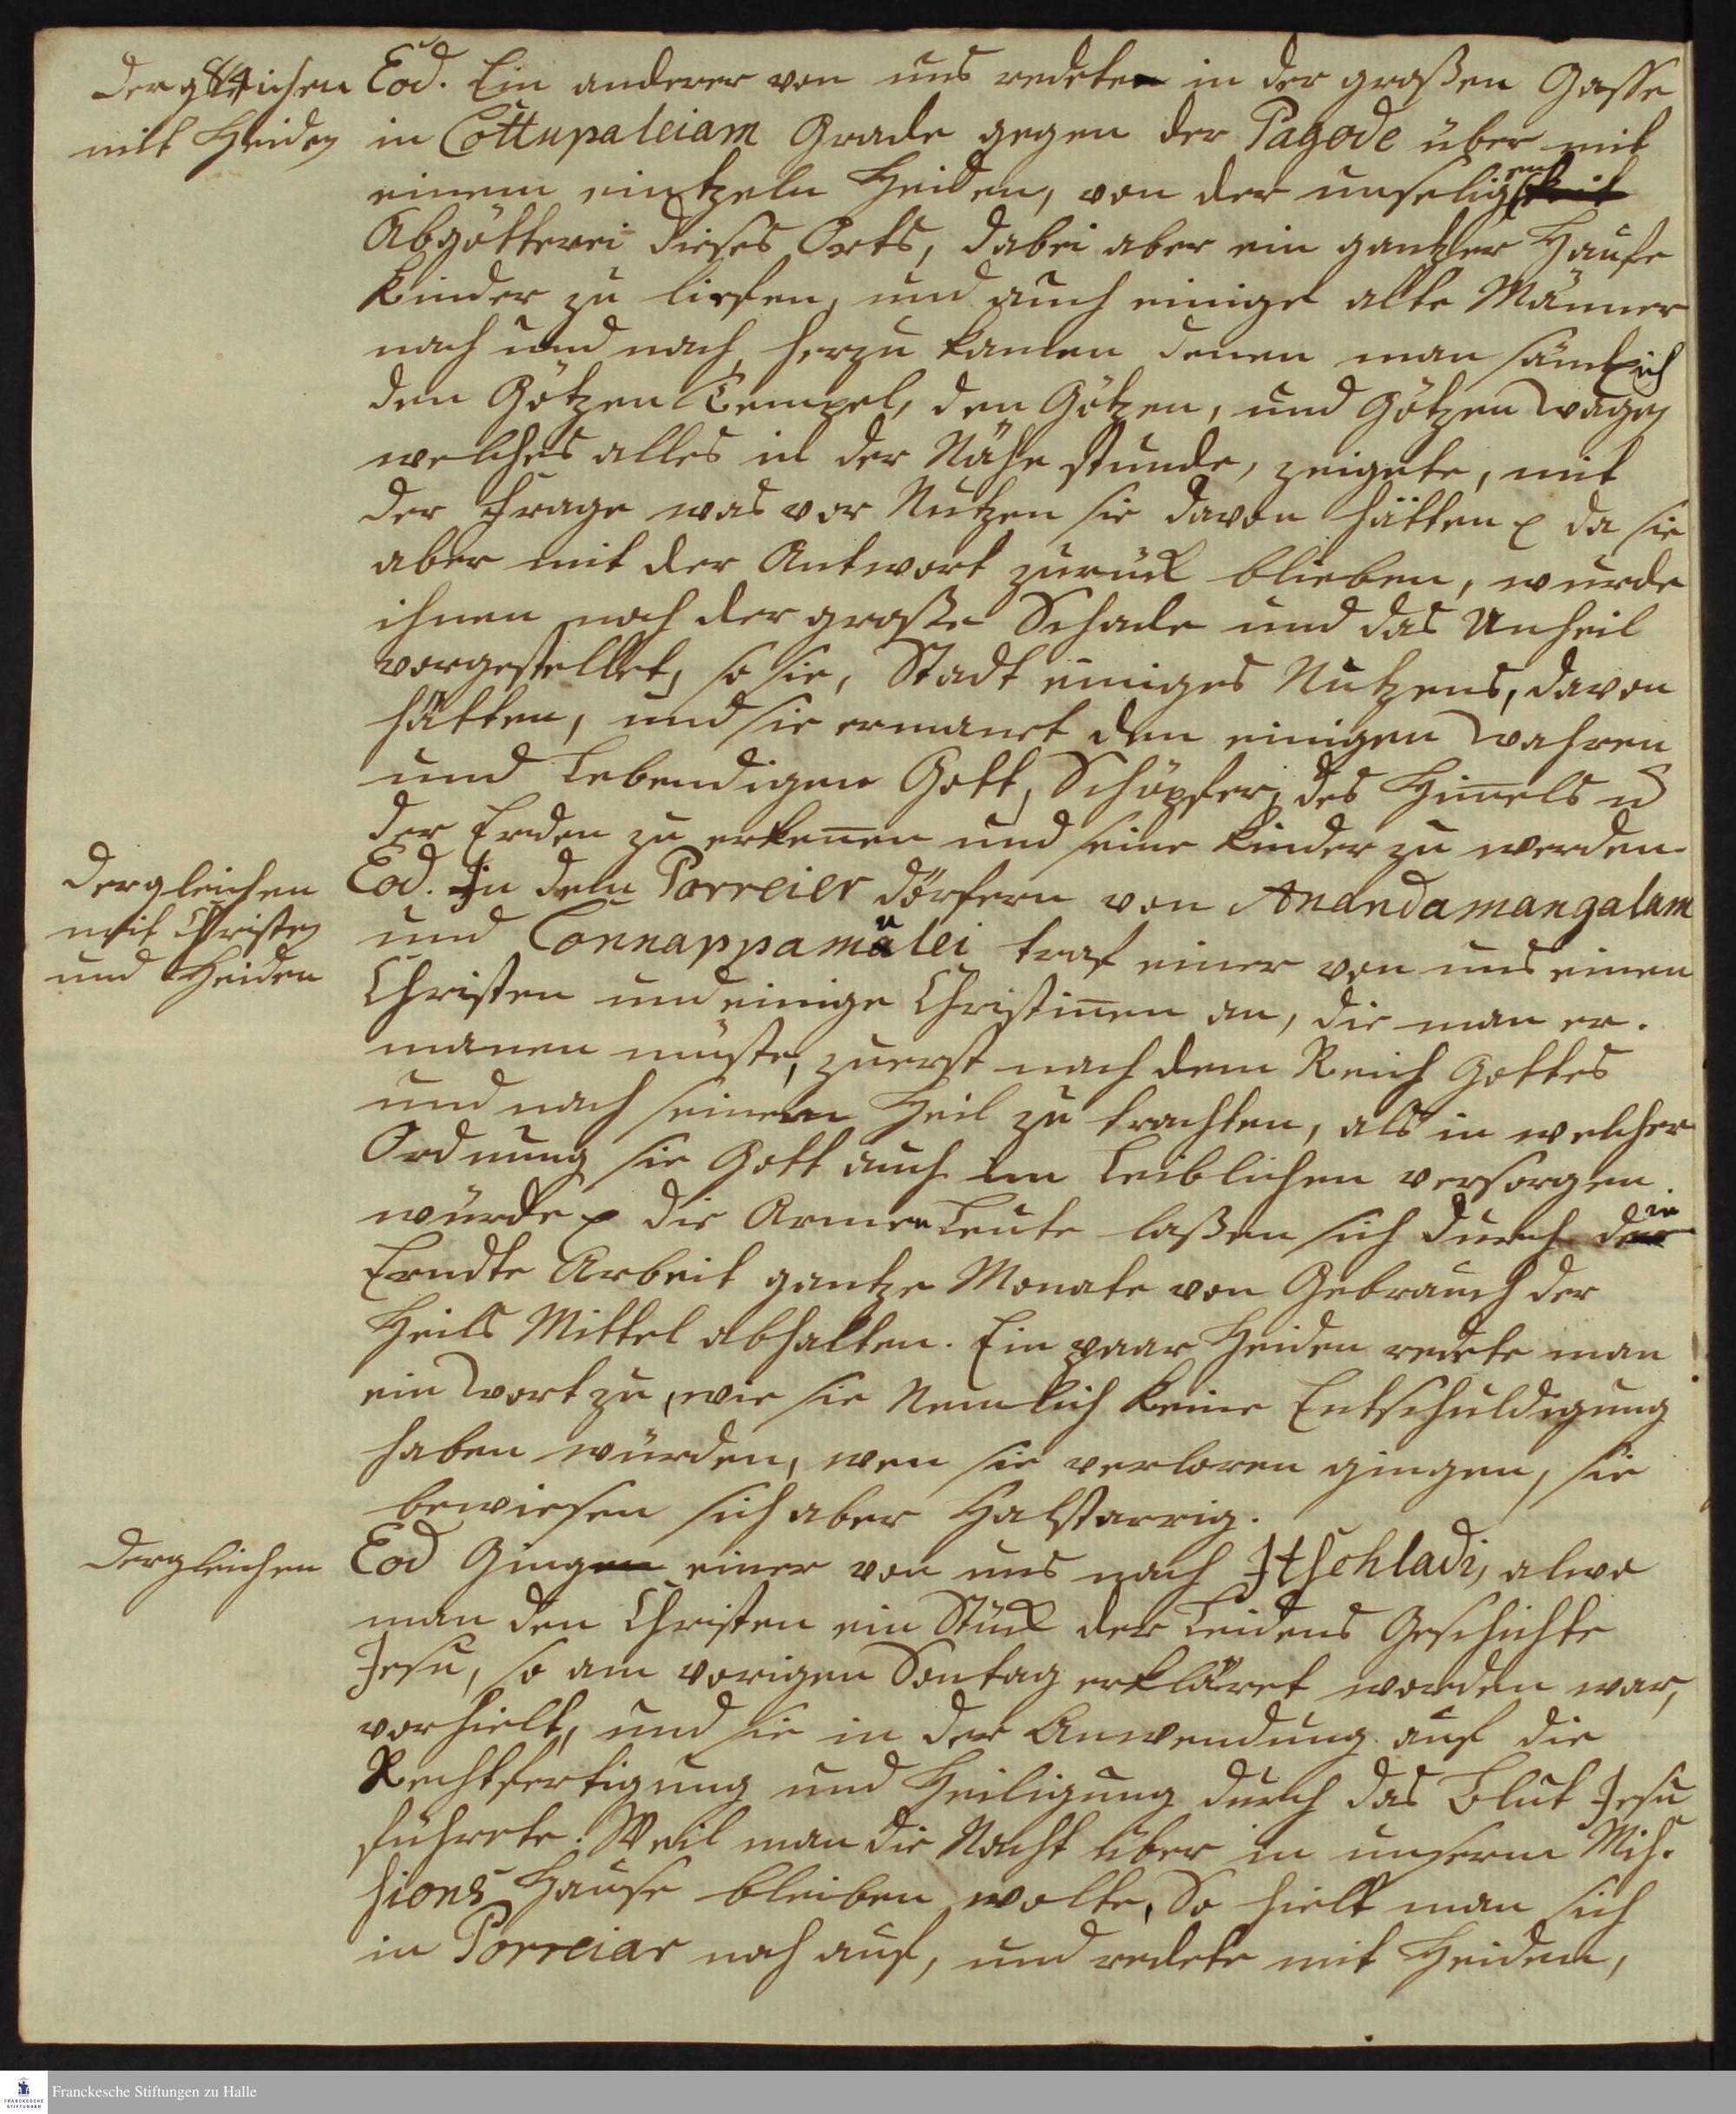 dergleichen
mit Heiden
Eod. Ein anderer von uns redete in der großen Gasse
in Cottupaleiam Grade gegen der Pagode über mit
einem eintzeln Heiden, von der unseligen
Abgötterei dieses Orts, dabei aber ein gantzer Haufe
Kinder zu liefen, und auch einige alte Männer
nach und nach herzu kamen denen man sämtlich
den Götzen Tempel, den Götzen, und Götzen Wagen
welches alles in der Nähe stunde, zeigete, mit
der Frage was vor Nutzen sie davon hätten da sie
aber mit der Antwort zurück blieben, wurde
ihnen noch der große Schade und das Unheil
vorgestellet, so sie, Stadt einiges Nutzens, davon
hätten, und sie ermanet den einigen Wahren
und Lebendigen Gott, Schöpfer des Him̅els u
der Erden zu erken̅en und seine Kinder zu werden.
dergleichen
mit Christen
und Heiden
Eod. In den Porreier dörfern von Anandamangalam
und Connappamulei traf einer von uns einen
Christen und einige Christin̅en an, die man er-
manen muste, zuerst nach dem Reich Gottes
und nach seinem Heil zu trachten, als in welcher
Ordnung sie Gott auch im Leiblichen versorgen
würde die Armen Leute laßen sich durch die
Erndte Arbeit gantze Monate von Gebrauch der
Heils Mittel abhalten. Ein paar Heiden redete man
ein Wort zu, wie sie Nemlich keine Entschuldigung
haben würden, wen sie verloren gingen, sie
bewiesen sich aber Halstarrig.
dergleichen
Eod Ging einer von uns nach Itschladi, alwo
man den Christen ein Stück der Leidens Geschichte
Jesu, so am vorigen Sontag erkläret worden war,
vorhielt, und sie in der Anwendung auf die
Rechtfertigung und Heiligung durch das Blut Jesu
führete. Weil man die Nacht über in unserm Mis-
sions Hause bleiben wolte, So hielt man sich
in Porreiar noch auf, und redete mit Heiden,
Franckesche Stiftungen zu Halle